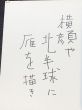 横顔や
北半球に
雁を描き